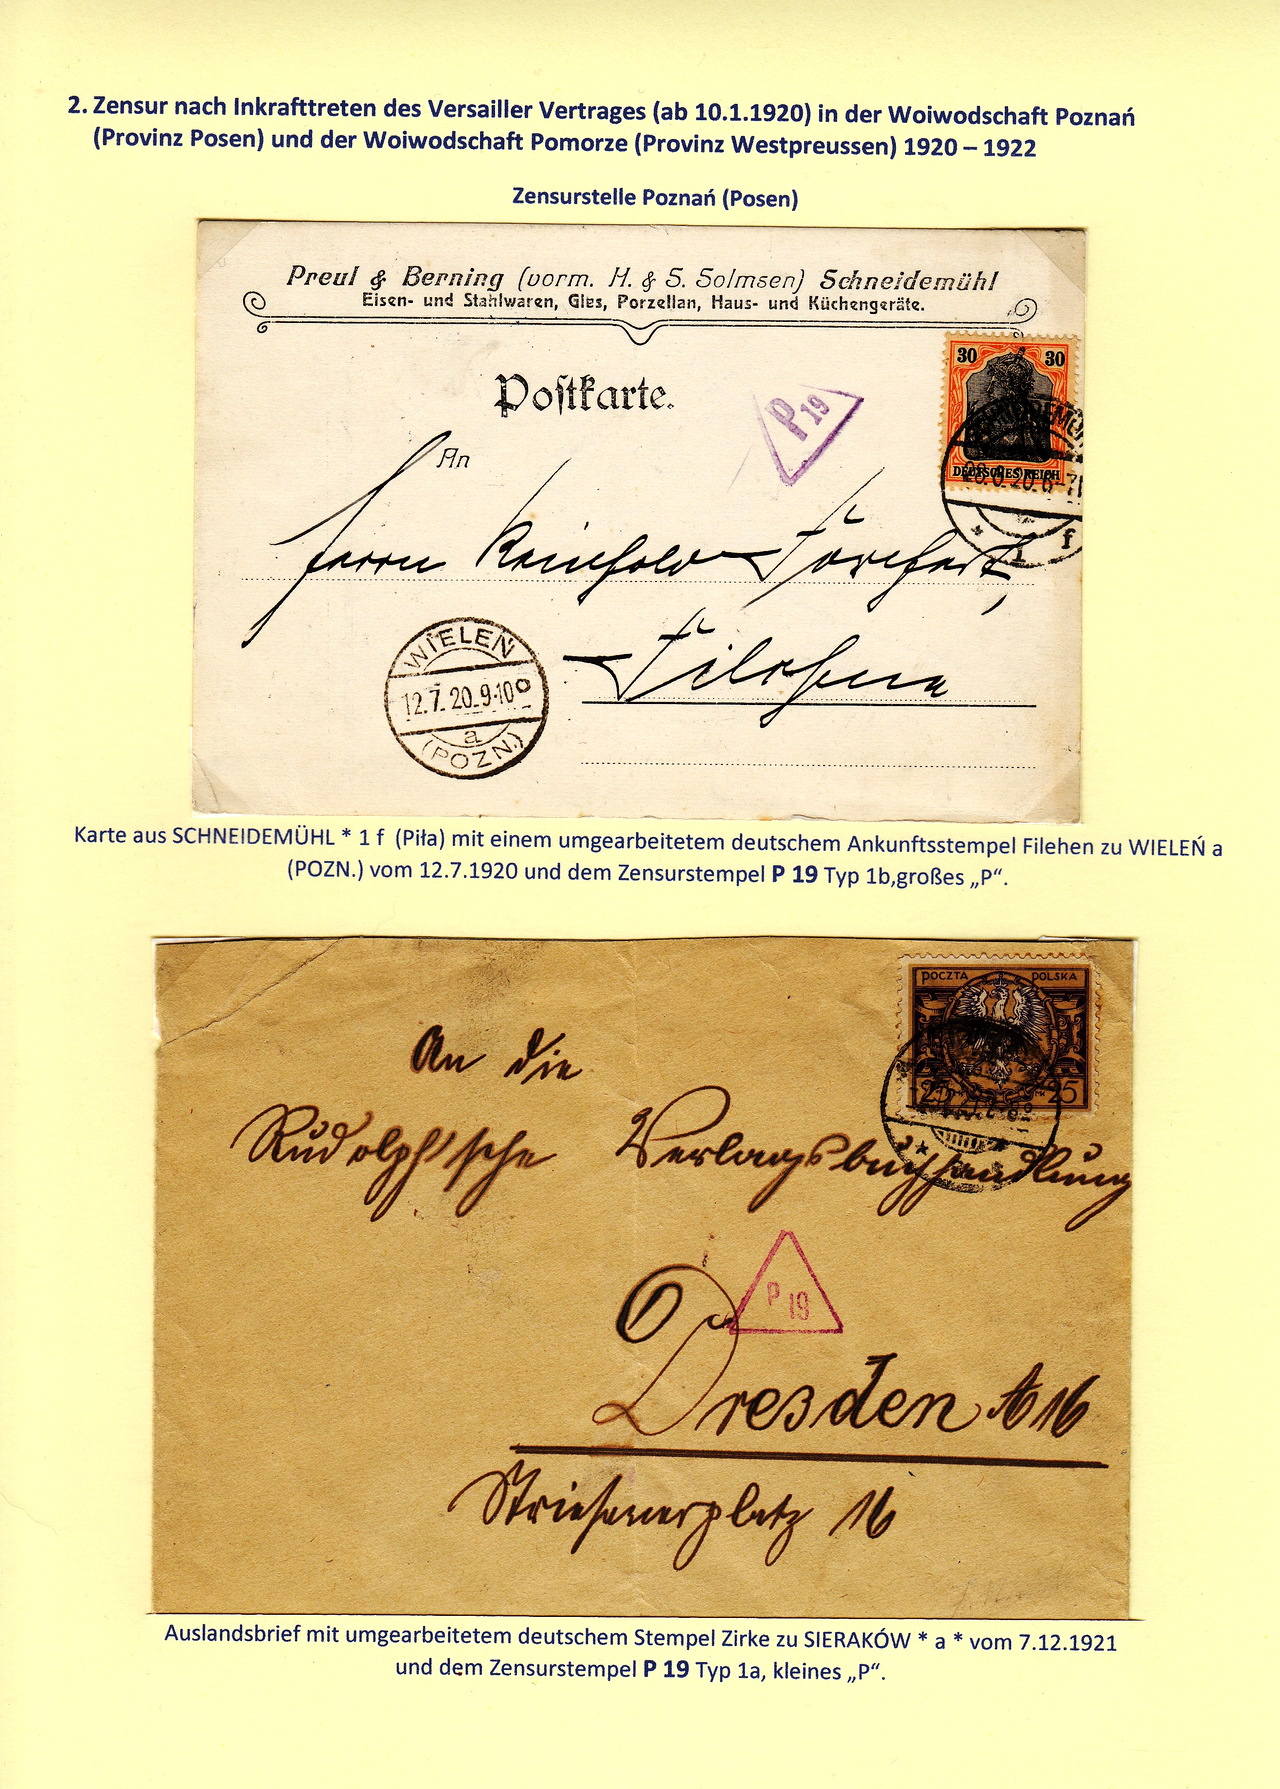 2. Zensur nach Inkrafttreten des Versailler Vertrages (ab 10.1.1920) in der Woiwodschaft Poznań
(Provinz Posen) und der Woiwodschaft Pomorze (Provinz Westpreussen) 1920 – 1922
Zensurstelle Poznań (Posen)
Preul & Berning (vorm. H. & S. Solmsen) Schneidemühl
Eisen- und Stahlwaren, Glas, Porzellan, Haus- und Küchengeräte.
30 30
DEUTSCHES REICH
Postkarte.
P 19
An
Herrn Reinhold
Filehne
WIELEŃ
12.7.20.9-10
a
(POZN.)
1 f
Karte aus SCHNEIDEMÜHL * 1 f (Piła) mit einem umgearbeitetem deutschem Ankunftsstempel Filehen zu WIELEŃ a
(POZN.) vom 12.7.1920 und dem Zensurstempel P 19 Typ 1b,großes „P“.
POCZTA POLSKA
25 25
An die
Rudolph'sche Verlagsbuchhandlung
P 19
Dresden A 16
Striesenerplatz 16
Auslandsbrief mit umgearbeitetem deutschem Stempel Zirke zu SIERAKÓW * a * vom 7.12.1921
und dem Zensurstempel P 19 Typ 1a, kleines „P“.